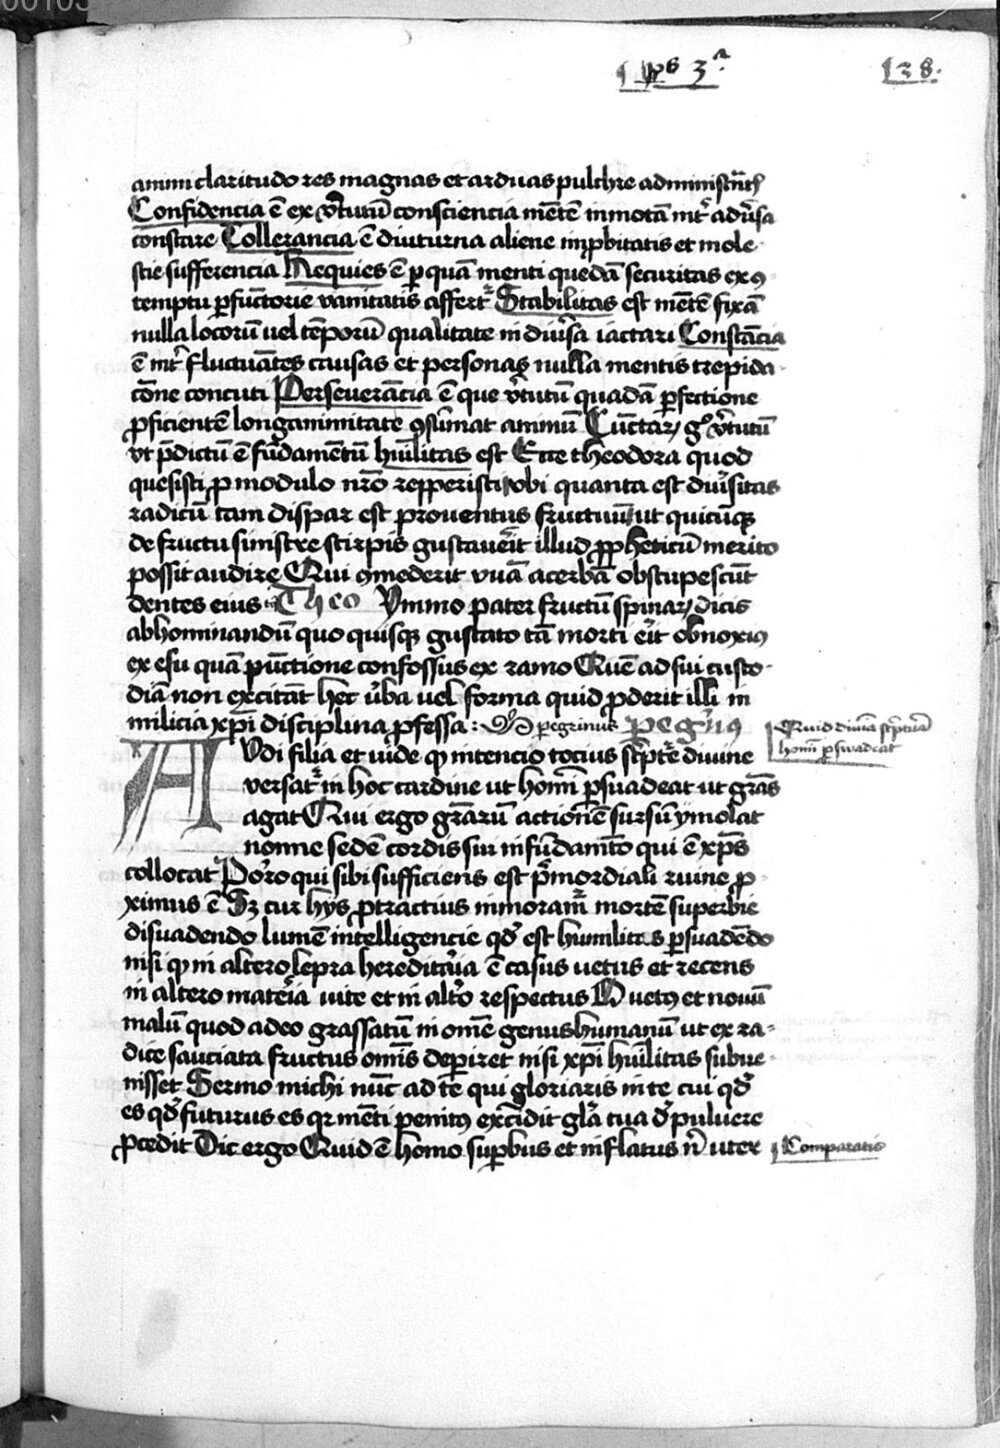 001031
ps 3ª
138.
animi claritudo res magnas et arduas pulchre administrāth
Confidencia ē ex v̾tutū consciencia mētē inmotā int̾ adu̾sa
constare Tollerancia ē diuturna aliene inp̱bitatis et mole-
stie sufferencia Requies ē p̱ quā menti quedā securitas ex ꝯ-
temptu p̱functorie vanitatis affert̾ Stabilitas est mētē fixā
nulla locorū uel tēporū qualitate in diu̾sa iactari Constācia
ē int̾ fluctuātes causas et personas nulla mentis trepida-
cōne concuti Perseuerācia ē que v̾tutū quadā p̱fectione
ꝓficientē longanimitate ꝯsūmat animū Cūctaꝝ gͦ v̾tutū
vt p̄dictū ē fūdamētū hūilitas est Ecce theodora quod
quesisti ꝓ modulo nr̄o repperisti vbi quanta est diu̾sitas
radicū tam dispar est prouentus fructuū ut quicūqꝫ
de fructu sinistre stirpis gustauerīt illud ꝓpheticū merito
possit audire Qui ꝯmederit vuā acerbā obstupescūt
dentes eius Theo Ymmo pater fructū spinaꝝ dicis
abhominandū quo quisqꝫ gustato tā morti er̾it obnoxiꝰ
ex esu quā pūctione confossus ex ramo Quē ad sui custo-
diā non excitāt hec u̾ba uel forma quid ꝓderit illi in
milicia xp̄i disciplina ꝓfessa: peregrinus peg̾nꝰ
Quid diuīa sc̾ptura
homī p̱suadeat
AVdi filia et uide qͥ intencio tocius sc̾pt̾e diuine
versat̾ in hoc cardine ut homī p̱suadeat ut grās
agat Qui ergo grārū actionē sursū ymolat
nonne sedē cordis sui in fūdamēto qui ē xp̄s
collocat Porͦro qui sibi sufficiens est p̾mordiali ruine ꝓ-
ximus ē Sꝫ cur hys ꝓtractius inmoram̾ mortē superbie
disuadendo lumē intelligencie qd̾ est humilitas p̱suadēdo
nisi qͥ in altero lepra hereditar̾ia ē casus uetus et recens
in altero mater̾ia vite et in alt̾o respectus H uetꝰ et nouū
malū quod adeo grassatū in omē genus humanū ut ex ra-
dice sauciata fructus omīs deperiret nisi xp̄i hūilitas subue-
nisset Sermo michi nūc ad te qui gloriaris in te cui qd̾
es qd̾ futurus es qr mēti penitꝰ excīdit glā tua d̾ puluere
ꝓcedit Dic ergo Quid ē homo sup̱bus et inflatus n̄ uter
Comparatio